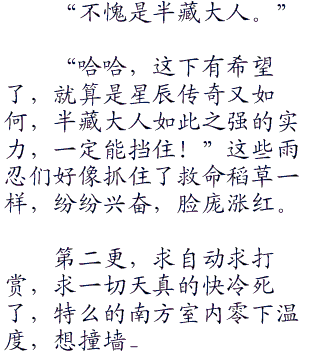 “不愧是半藏大人。”
“哈哈，这下有希望
了，就算是星辰传奇又如
何，半藏大人如此之强的实
力，一定能挡住！”这些雨
忍们好像抓住了救命稻草一
样，纷纷兴奋，脸庞涨红。
第二更，求自动求打
赏，求一切天真的快冷死
了，特么的南方室内零下温
度，想撞墙_